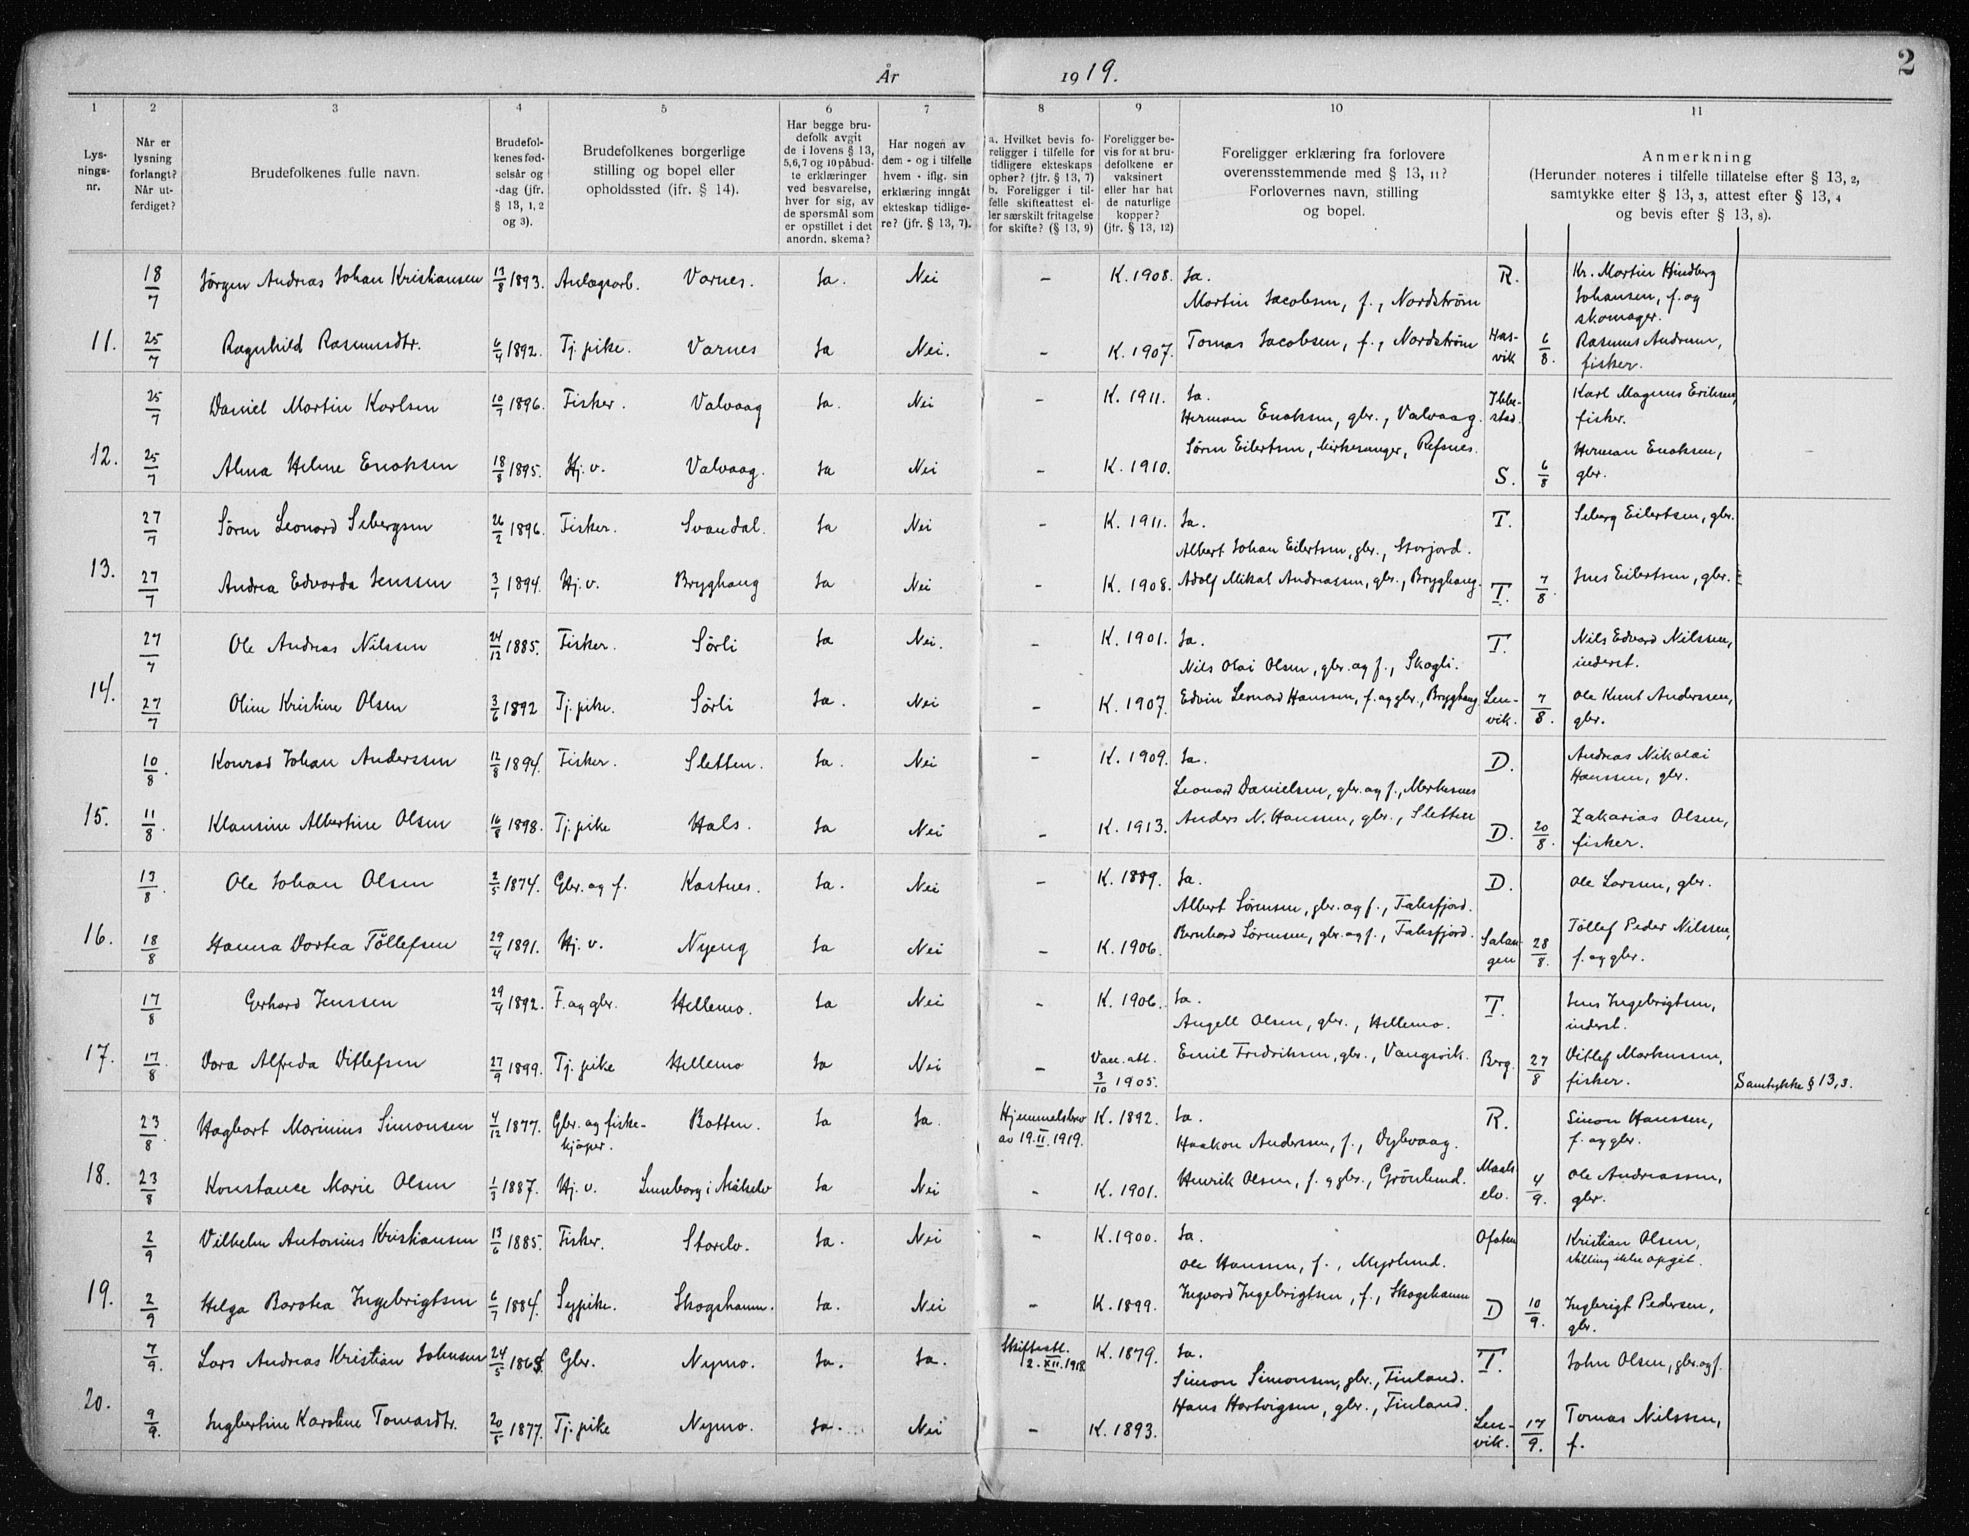 År 1919.
2
1 2 3 4 5 6 7 8 9 10 11
Lysningsnr.
Når er lysning forlangt? Når utferdiget?
Brudefolkenes fulle navn.
Brudefolkenes fødselsår og -dag (jfr. § 13, 1, 2 og 3).
Brudefolkenes borgerlige stilling og bopel eller opholdssted (jfr. § 14).
Har begge brudefolk avgit de i lovens § 13, 5,6,7 og 10 påbudte erklæringer ved besvarelse, hver for sig, av de spørsmål som er opstillet i det anordn. skema?
Har nogen av dem - og i tilfelle hvem - iflg. sin erklæring inngåt ekteskap tidligere? (jfr. § 13, 7).
a. Hvilket bevis foreligger i tilfelle for tidligere ekteskaps ophør? (jfr. § 13, 7) b. Foreligger i tilfelle skifteattest eller særskilt fritagelse for skifte? (§ 13, 9)
Foreligger bevis for at brudefolkene er vaksinert eller har hat de naturlige kopper? (jfr. § 13, 12)
Foreligger erklæring fra forlovere overensstemmende med § 13, 11? Forlovernes navn, stilling og bopel.
Anmerkning (Herunder noteres i tilfelle tillatelse efter § 13, 2, samtykke efter § 13, 3, attest efter § 13, 4 og bevis efter § 13, 8).
18/7 Jörgen Andreas Johan Kristiansen 13/8 1893. Anlægsarb. Varnes. Ja. Nei - K. 1908. Ja. Martin Jacobsen, f., Nordstrøm R. Kr. Martin Hindberg Johansen, f. og skomager.
11. 25/7 Ragnhild Rasmusdtr. 6/4 1892. Tj. pike. Varnes Ja Nei. - K. 1907. Tomas Jacobsen, f., Nordstrøm Hasvik 6/8. Rasmus Andersen, fisker.
25/7 Daniel Martin Karlsen 10/7 1896. Fisker. Valvaag Ja. Nei - K. 1911. Ja. Herman Enoksen, gbr., Valvaag. Ibbestad. Karl Magnus Eriksen, fisker.
12. 25/7 Alma Helene Enoksen 18/8 1895. Hj. v. Valvaag. Ja Nei - K. 1910. Sörn Eilertsen, kirkesanger, Refsnes. S. 6/8 Herman Enoksen, gbr.
27/7 Sörn Leonard Sebergsen 26/2 1896. Fisker. Svandal. Ja Nei - K. 1911. Ja. Albert Johan Eilertsen, gbr., Storjord. T. Seberg Eilertsen, gbr.
13. 27/7 Andrea Edvarda Jenssen 3/1 1894. Hj. v. Bryghaug Ja Nei - K. 1908. Adolf Mikal Andreassen, gbr., Bryghaug. T. 7/8. Jens Eilertsen, gbr.
27/7 Ole Andreas Nilssen 24/12 1885. Fisker. Sørli Ja Nei. - K. 1901. Ja. Nils Olai Olsen, gbr. og f., Skogli. T. Nils Edvard Nilssen, inderst.
14. 27/7 Oline Kristine Olsen 3/6 1892 Tj. pike. Sørli Ja. Nei - K. 1907. Edvin Leonard Hanssen, f. og gbr., Bryghaug Lenvik. 7/8. Ole Knut Anderssen, gbr.
10/8. Konrad Johan Anderssen 12/8 1894. Fisker. Sletten. Ja. Nei - K. 1909. Ja. Leonard Danielsen, gbr. og f., Merkesnes D. Andreas Nikolai Hanssen, gbr.
15. 11/8. Klausine Albertine Olsen 16/8 1898. Tj. pike Hals. Ja Nei - K. 1913. Anders N. Hanssen, gbr., Sletten D. 20/8. Zakarias Olsen, fisker.
13/8. Ole Johan Olsen 2/5 1874. Gbr. og f. Kastnes. Ja. Nei - K. 1889. Ja. Albert Sørensen, gbr. og f., Faksfjord. D. Ole Larssen, gbr.
16. 18/8 Hanna Dortea Töllefsen 29/4 1891. Hj. v. Nyeng Ja Nei - K. 1906. Bernhard Sørensen, gbr. og f., Faksfjord. Salangen 28/8. Töllef Peder Nilssen, f. og gbr.
17/8 Gerhard Jenssen 29/4 1892. F. og gbr. Hellemo. Ja Nei - K. 1906. Ja. Angell Olsen, gbr., Hellemo. T. Jens Ingebrigtsen, inderst.
17. 17/8 Dora Alfreda Ditlefsen 27/9 1899. Tj. pike Hellemo Ja Nei - Vacc. att. 3/10 1905. Emil Fredriksen, gbr., Vangsvik. Berg. 27/8 Ditlef Markussen, fisker. Samtykke § 13, 3.
23/8 Hagbart Marinius Simonsen 4/12 1877. Gbr. og fiskekjøper. Botten. Ja Ja. Hjemmelsbrev av 19.II.1919. K. 1892. Ja. Haakon Andersen, f., Dybvaag. R. Simon Hanssen, f. og gbr.
18. 23/8 Konstanse Marie Olsen 1/3 1887. Hj. v. Luneborg i Målselv Ja Nei - K. 1901. Henrik Olsen, f. og gbr., Grönlund. Maalselv. 4/9. Ole Andreassen, gbr.
2/9 Vilhelm Antonius Kristiansen 13/6 1885. Fisker. Storelv. Ja. Nei - K. 1900. Ja. Ole Hanssen, f., Myrlund. Ofoten Kristian Olsen, stilling ikke opgit.
19. 2/9 Helga Barotea Ingebrigtsen 6/7 1884. Sypike. Skogshamn. Ja. Nei - K. 1899. Ingvard Ingebrigtsen, f., Skogshamn D 10/9. Ingbrigt Pedersen, gbr.
7/9. Lars Andreas Kristian Johnsen 24/5 1864. Gbr. Nymo. Ja. Ja. Skifteatt. 2.XII.1918 K. 1879. Ja. Simon Simonsen, gbr., Finland. T. John Olsen, gbr. og f.
20. 9/9. Ingbertine Karstine Tomasdtr. 20/5 1877. Tj. pike Nymo. Ja. Nei - K. 1893. Hans Hartvigsen, gbr., Finland. Lenvik. 17/9. Tomas Nilssen, f.